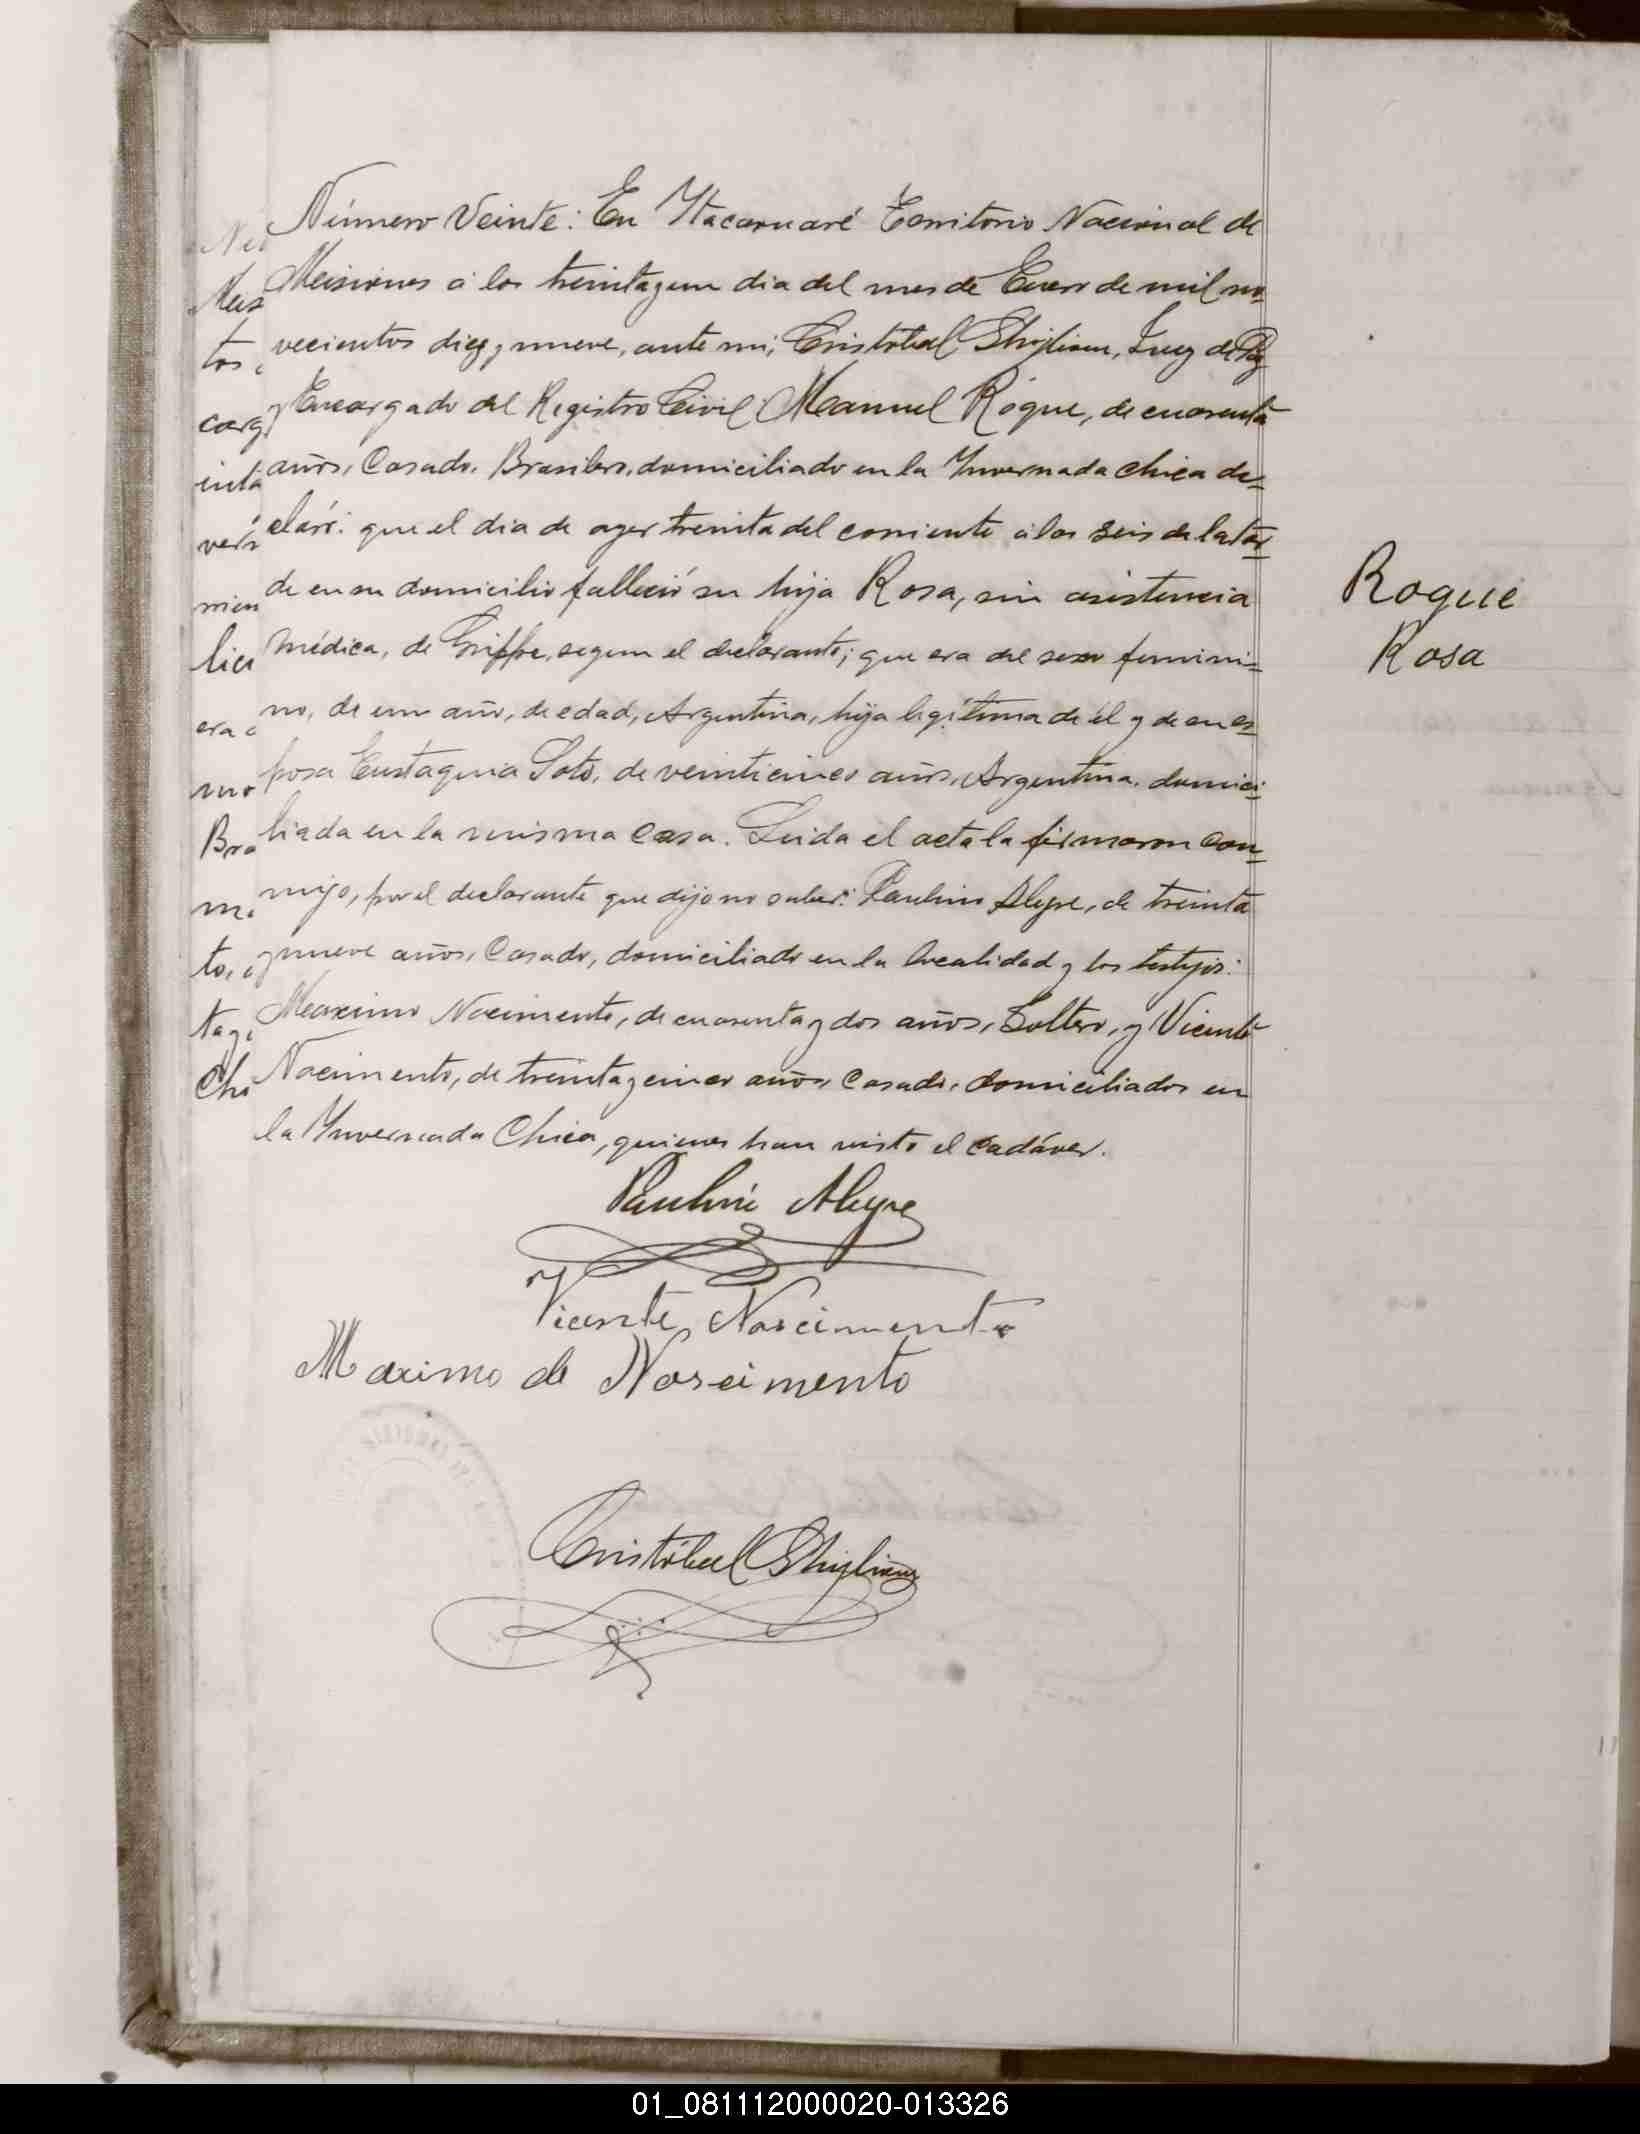 Número Veinte: En Ytacaruaré Territorio Nacional de
Misiones á los treinta y un dia del mes de Enero de mil no=
vecientos diez y nueve, ante mi, Cristóbal Ghigliane, Juez de Paz
y Encargado del Registro Civil: Manuel Roque, de cuarenta
años, Casado, Brasilero, domiciliado en la Invernada Chica de=
claró: que el dia de ayer treinta del corriente á las seis de la tar=
de en su domicilio falleció su hija Rosa, sin asistencia
médica, de Grippe, segun el declarante; que era del sexo femini=
no, de un año, de edad, Argentina, hija legítima de él y de su es=
posa Eustaquia Soto, de veinticinco años, Argentina, domici=
liada en la misma casa. Leida el acta la firmaron con=
migo, por el declarante que dijo no saber: Paulino Alegre, de treinta
y nueve años, Casado, domiciliado en la localidad y los testigos:
Maximo Nacimento, de cuarenta y dos años, Soltero, y Vicente
Nacimento, de treinta y cinco años, Casado, domiciliados en
la Invernada Chica, quienes han visto el cadáver.
Roque
Rosa
Paulino Alegre
Vicente Nascimento
Maximo de Nascimento
Cristóbal Ghigliane
01_081112000020-013326